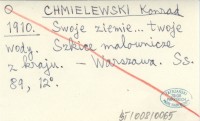 CHMIELEWSKI Konrad
1910. Swoje ziemie... twoje
wody. Szkice malownicze
z kraju. – Warszawa. Ss.
89, 12°.